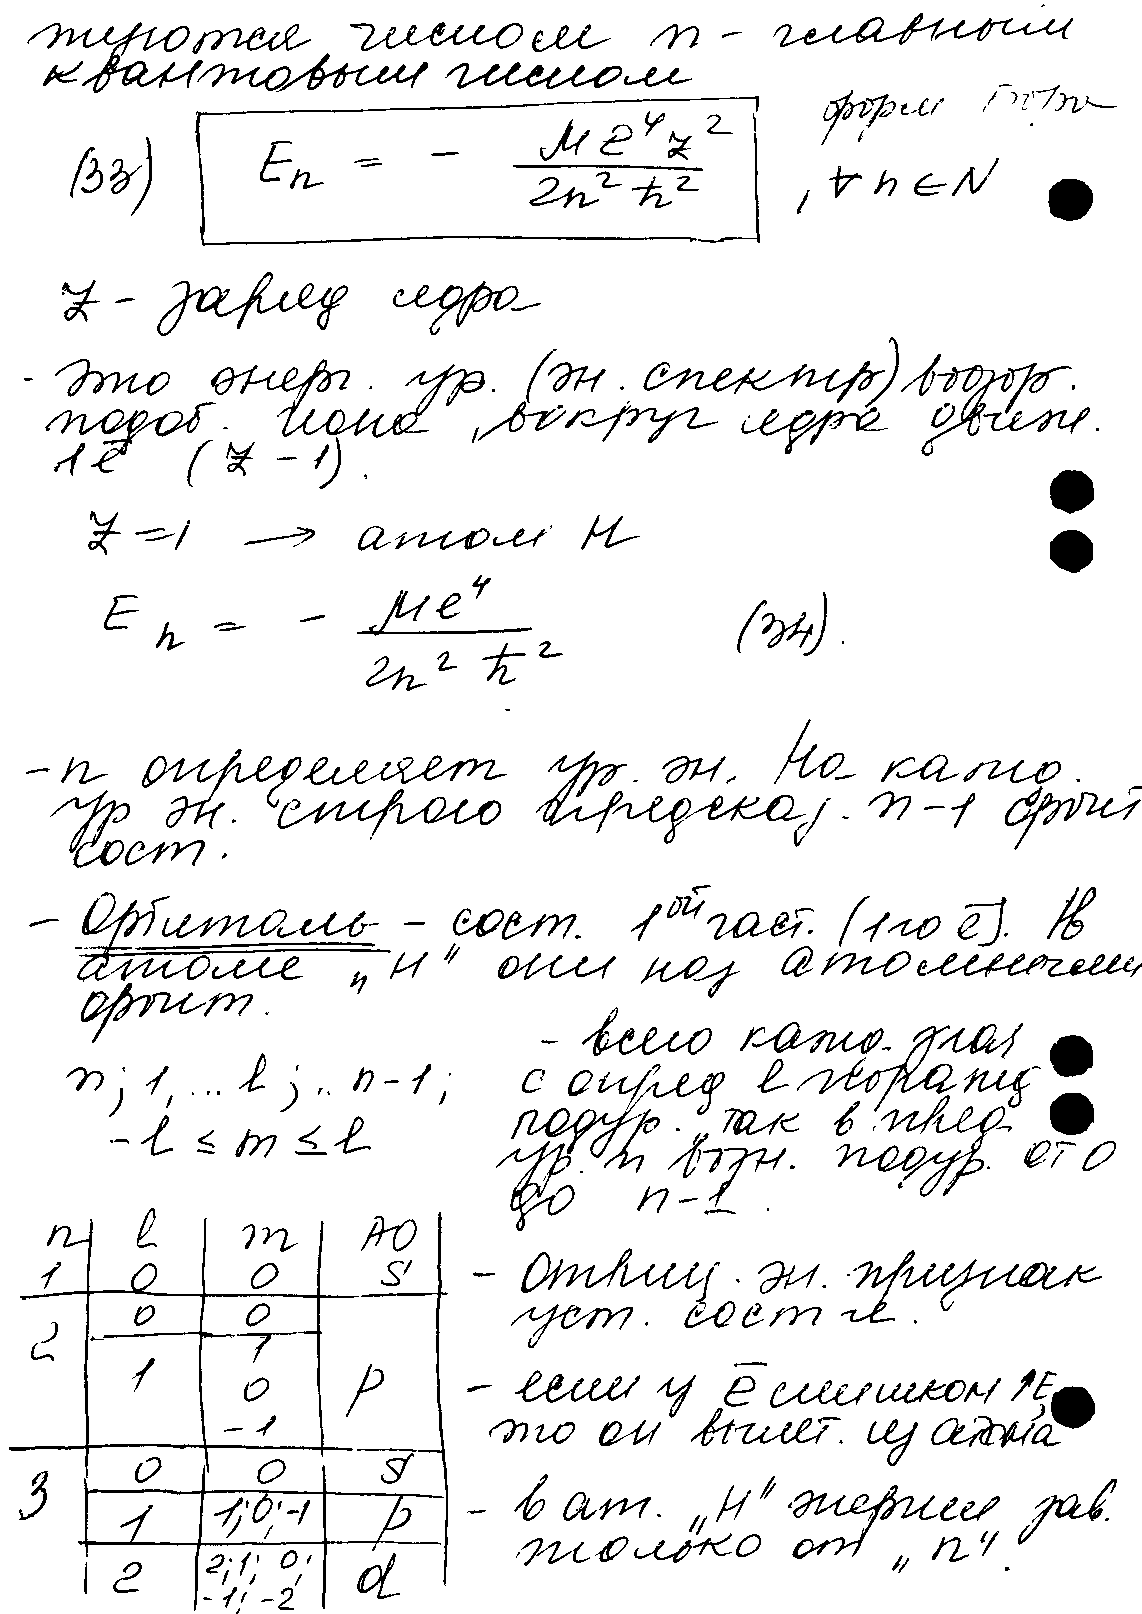 теются числом n - главным
квантовым числом
форм Бора
(33) Eₙ = - μ e⁴ z² / 2n² ħ² , ∀ n ∈ N
Z - заряд ядра
- это энерг. ур. (эн. спектр) водор.
подоб. иона, вокруг ядра движ.
1ē (Z - 1).
Z = 1 → атом H
Eₙ = - μe⁴ / 2n² ħ² (34).
- n определяет ур. эн. На каждо.
ур эн. строго предсказ. n-1 орбит
сост.
- Орбиталь - сост. 1ой част. (1го ē). В
атоме „H" они наз атомными
орбит.
n; 1, ... l; .. n-1;
-l ≤ m ≤ l
- всего кажд.
с опред l
подур. , так в пред
ур. n возн. подур. от 0
до n-1.
n | l | m | АО
1 | 0 | 0 | S
2 | 0 | 0
1 | 1 0 -1 | p
3 | 0 | 0 | S
1 | 1; 0; -1 | p
2 | 2; 1; 0; -1; -2 | d
- Отриц. эн. признак
уст. сост-я.
- если у ē слишком ↑E,
то он вылет. из атома
- в ат. „H" энергия зав.
только от „n".